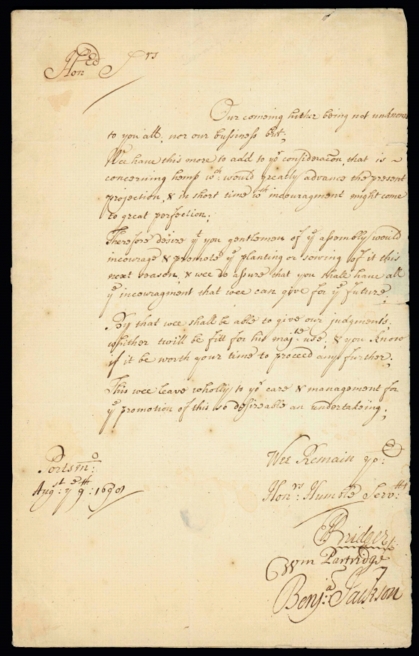 Hon^ed S^rs
Our comeing hither being not unknown
to you all, nor our bussiness but;
Wee have this more to add to y^r consideracon, that is
concerning hemp w^ch would greatly advance the present
projection, & in short time w^th incouragment might come
to great perfection.
Therefore desire y^t you gentlemen of y^e assembly would
incourage & promote y^e planting or sowing of it this
next season & wee do assure that you shall have all
y^e incouragment that wee can give for y^e future,
By that wee shall be able to give our judgments
whether twill be fitt for his maj^tys use, & you know
if it be worth your time to proceed any further.
This wee leave wholly to y^r care & management for
y^e promotion of this so desireable an undertakeing;
Portsm^o:
Aug^st y^e 9^th: 1698
Wee Remain yo^r
Hon^rs Humble Serv^ts
Bridger
W^m Partridge
Benj^a Jackson